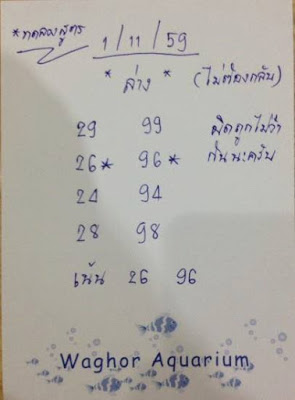 *ทดลองสูตร 1/11/59
* ล่าง * (ไม่ต้องกลับ)
29 99 ผิดถูกไม่ว่า
26* 96* กันนะครับ
24 94
28 98
เน้น 26 96
Waghor Aquarium